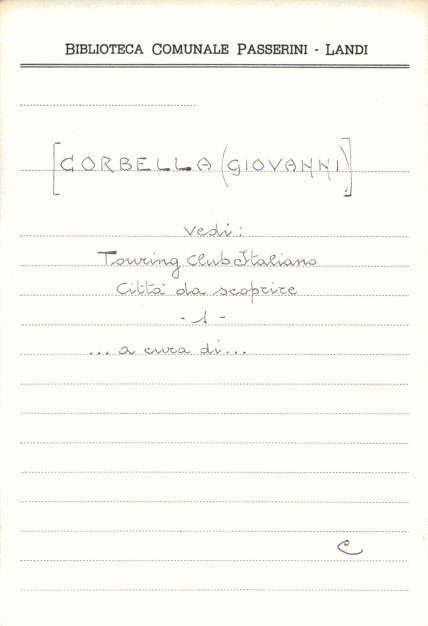 BIBLIOTECA COMUNALE PASSERINI - LANDI
[CORBELLA (GIOVANNI)]
vedi:
Touring Club Italiano
Città da scoprire
- 1 -
... a cura di...
C